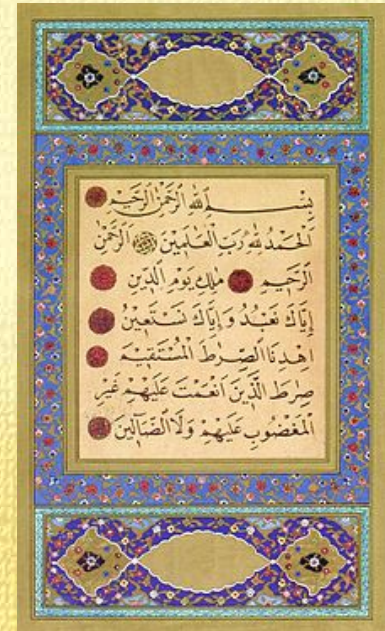 بِسْمِ اللهِ الرَّحْمٰنِ الرَّحِيمِ
اَلْحَمْدُ لِلهِ رَبِّ الْعَالَمِينَ الرَّحْمٰنِ
الرَّحِيمِ مٰلِكِ يَوْمِ الدِّينِ
إِيَّاكَ نَعْبُدُ وَإِيَّاكَ نَسْتَعِينُ
اِهْدِنَا الصِّرَاطَ الْمُسْتَقِيمَ
صِرَاطَ الَّذِينَ اَنْعَمْتَ عَلَيْهِمْ غَيْرِ
الْمَغْضُوبِ عَلَيْهِمْ وَلَا الضَّالِّينَ